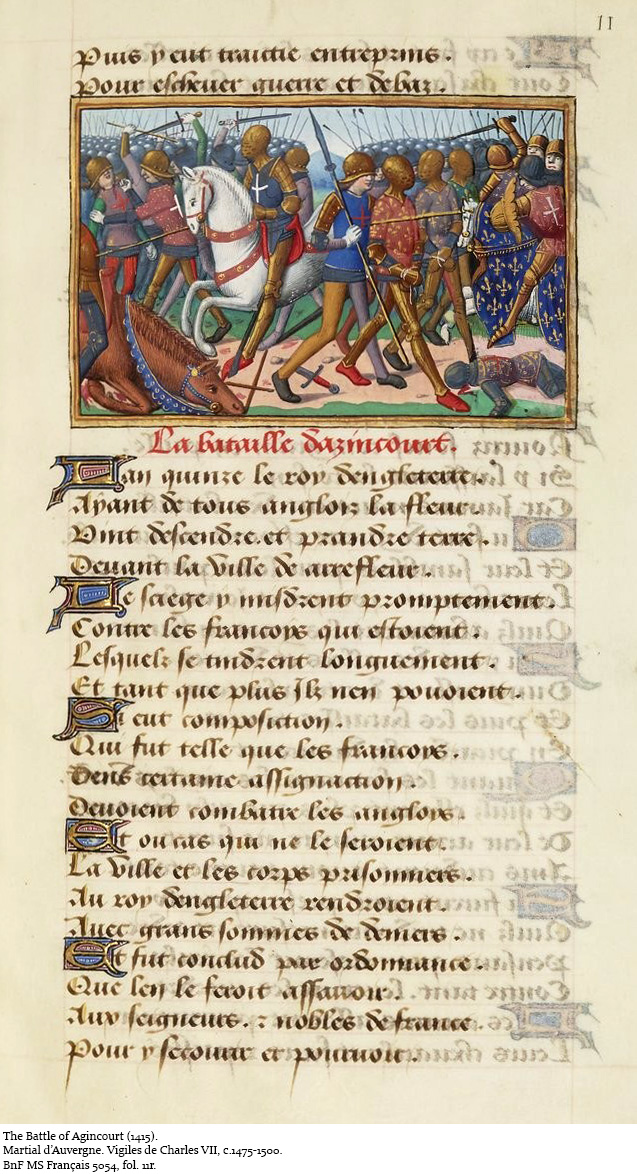 11
Puis y eut traictie entreprins.
Pour eschever guerre et debaz.
La bataille dazincourt.
Lan quinze le roy dengleterre.
Ayant de tous anglois la fleur.
Vint descendre et prandre terre.
Devant la ville de arrefleur.
Le siege y misdrent promptement.
Contre les francoys qui estoient.
Lesquelz se tindrent longuement.
Et tant que plus ilz nen povoient.
Si eut composicion.
Qui fut telle que les francoys.
Dens certaine assignaction.
Devoient combatre les angloys.
Et ou cas qui ne le feroient.
La ville et les corps prisonniers.
Au roy dengleterre rendroient.
Avec grans sommes de deniers.
Et fut conclud par ordonnance.
Que len le feroit assavoir.
Aux seigneurs. z nobles de france.
Pour y secourir et pourvoir.
The Battle of Agincourt (1415).
Martial d'Auvergne. Vigiles de Charles VII, c.1475-1500.
BnF MS Français 5054, fol. 11r.